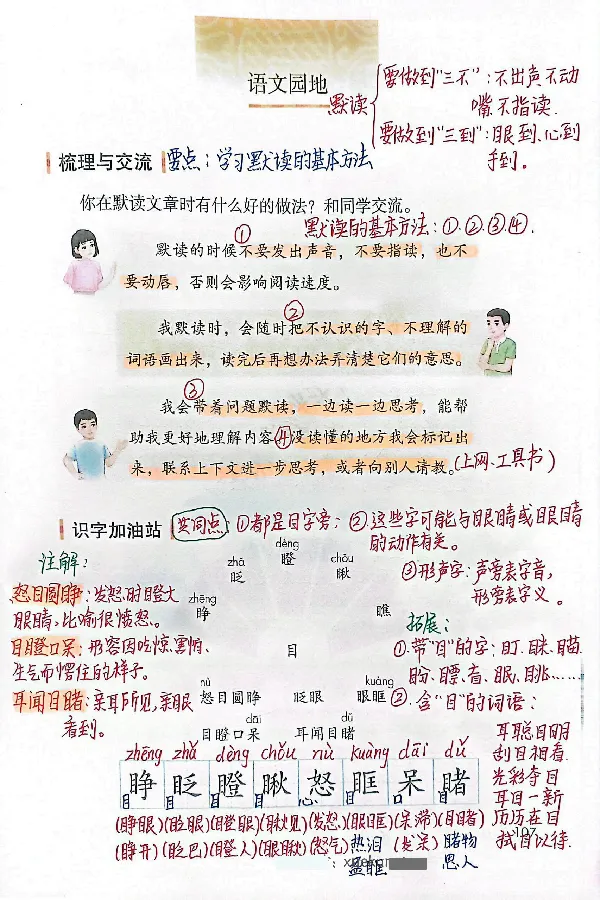 语文园地
默读
要做到“三不”：不出声不动
嘴不指读.
要做到“三到”：眼到、心到
手到。
梳理与交流
要点：学习默读的基本方法
你在默读文章时有什么好的做法？和同学交流。
默读的基本方法：①.②.③④.
①
默读的时候不要发出声音，不要指读，也不
要动唇，否则会影响阅读速度。
②
我默读时，会随时把不认识的字、不理解的
词语画出来，读完后再想办法弄清楚它们的意思。
③
我会带着问题默读，一边读一边思考，能帮
助我更好地理解内容④没读懂的地方我会标记出
来，联系上下文进一步思考，或者向别人请教。(上网、工具书)
识字加油站
共同点：①都是目字旁；②这些字可能与眼睛或眼睛
的动作有关。
③形声字：声旁表字音，
形旁表字义。
zhēng zhǎ dèng chǒu
睁 眨 瞪 瞅 瞧
目
nù kuàng
怒目圆睁 眨眼 眼眶
dāi dǔ
目瞪口呆 耳闻目睹
注解：
怒目圆睁：发怒时瞪大
眼睛，比喻很愤怒。
目瞪口呆：形容因吃惊、害怕、
生气而愣住的样子。
耳闻目睹：亲耳所见，亲眼
看到。
拓展：
①.带“目”的字：盯、眯、瞄
盼、瞟、盲、眠、眺……
②.含“目”的词语：
耳聪目明
刮目相看
光彩夺目
耳目一新
历历在目
拭目以待.
zhēng zhǎ dèng chǒu nù kuàng dāi dǔ
睁 眨 瞪 瞅 怒 眶 呆 睹
目 目 目 目 心 目 口 目
(睁眼)(眨眼)(瞪眼)(瞅见)(发怒)(眼眶)(呆滞)(目睹)
(睁开)(眨巴)(瞪人)(眼瞅)(怒气) 热泪 (发呆) 睹物
盈眶 思人
107